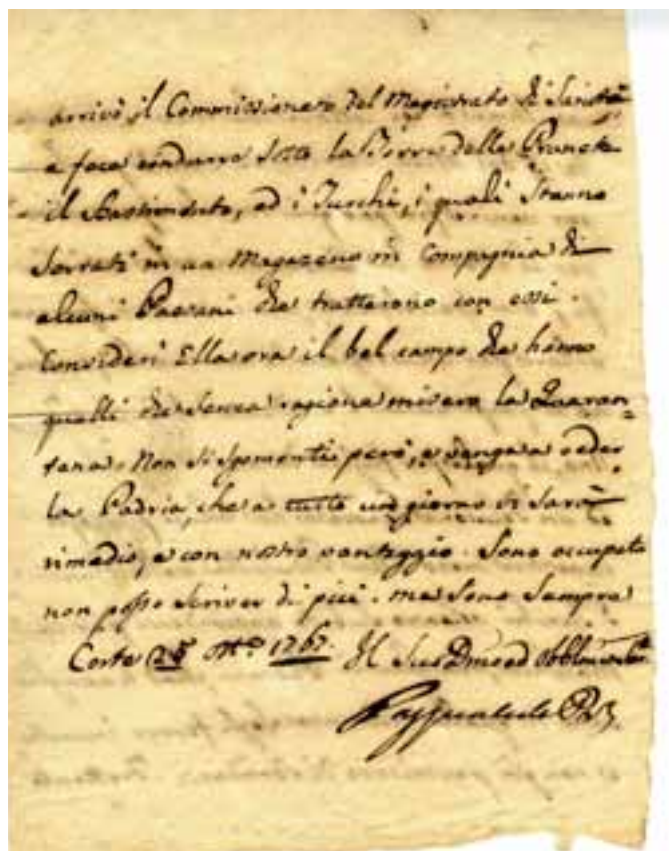 arrivò il Commissionato del Magistrato di Sanità
e fece condurre sotto la Torre delle Prunete
il Bastimento, ed i Turchi, i quali stanno
serrati in un Magazeno in Compagnia di
alcuni Paesani che trattarono con essi.
Consideri Ella ora il bel campo che hanno
quelli che senza ragione misero la Quaran=
tena. Non si spaventi però, e venga a veder
la Padria, che a tutto un giorno vi sarà
rimedio, e con nostro vantaggio. Sono occupato
non posso scriver di più. ma sono sempre
Corte 25 1767. Il Suo